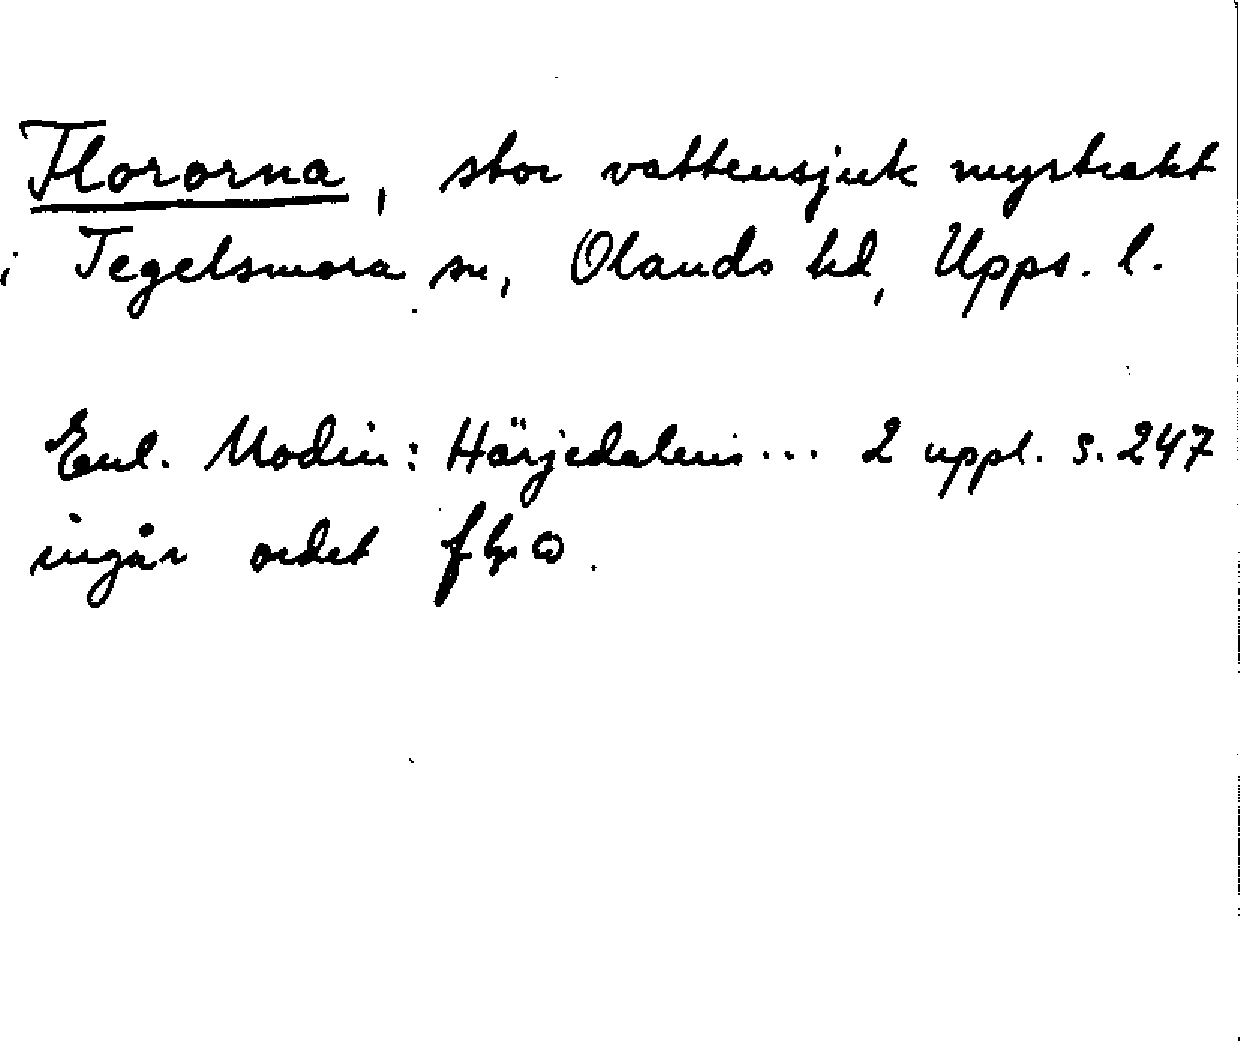 Flororna, stor vattensjuk myrtrakt
i Tegelsmora sn, Olands hd, Upps. l.
Enl. Modin: Härjedalens... 2 uppl. s. 247
ingår ordet